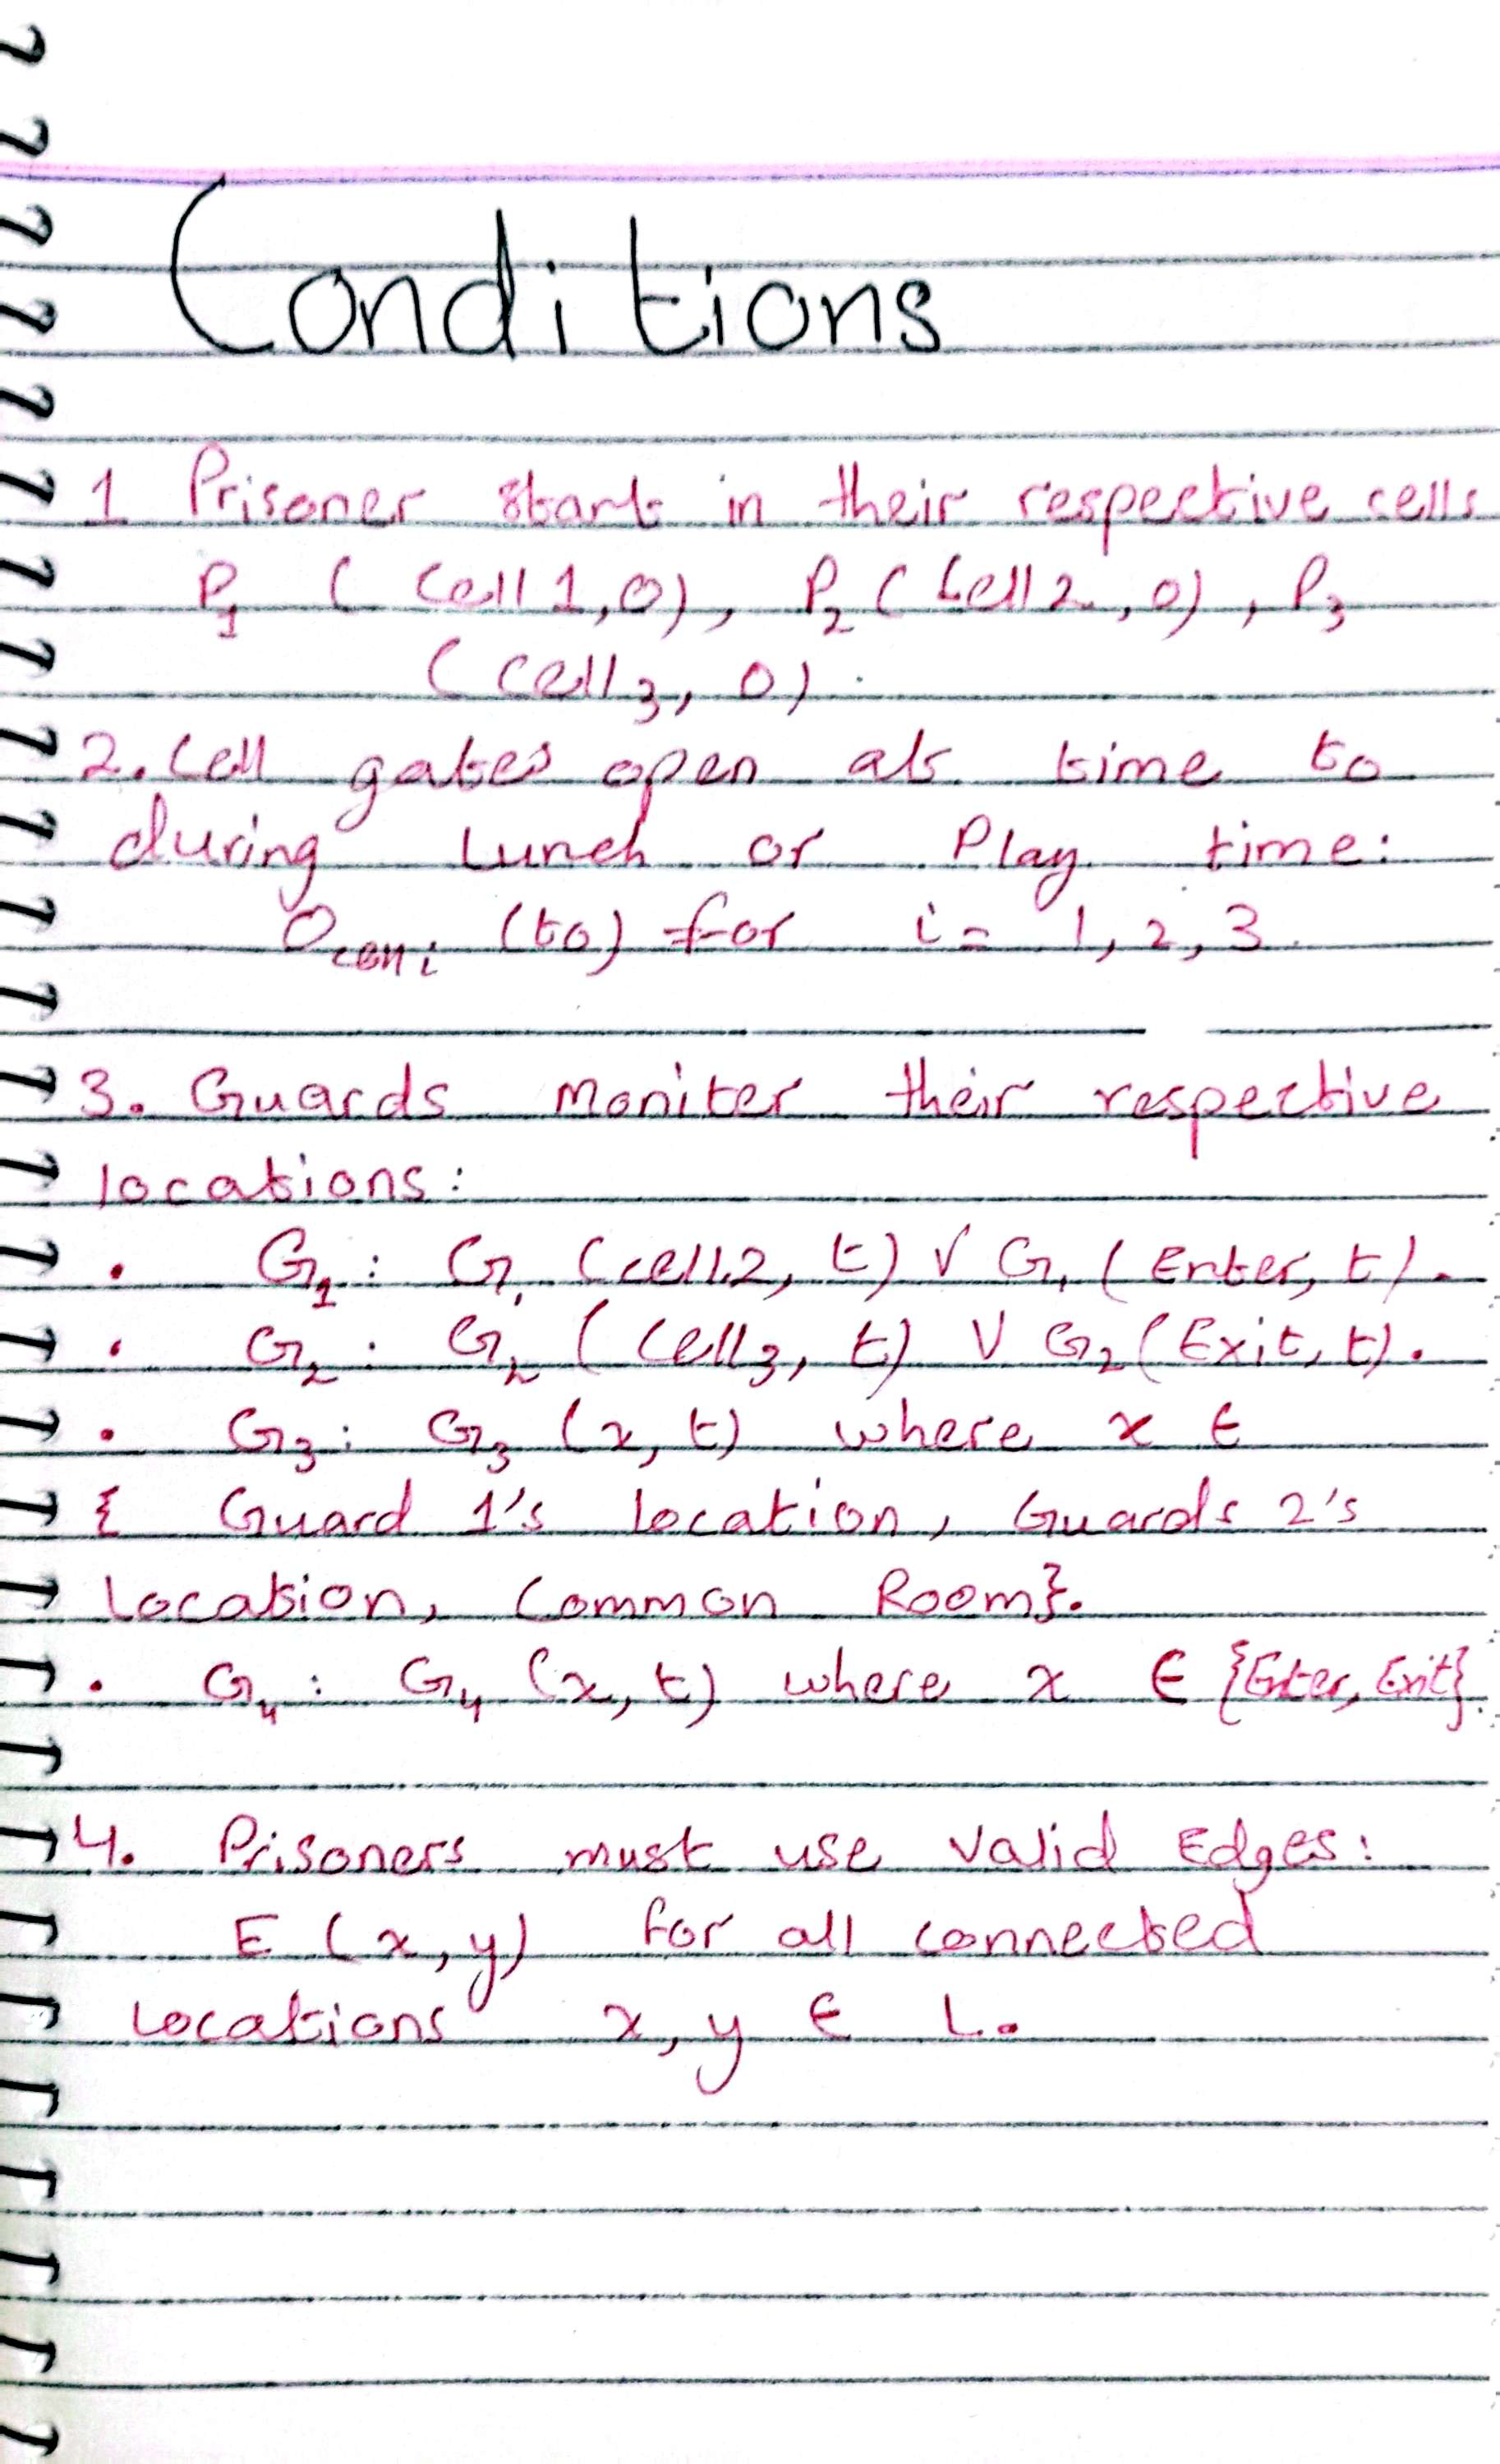 Conditions
1 Prisoner starts in their respective cells
P₁ ( Cell 1, 0), P₂ ( Cell 2, 0), P₃
( Cell₃, 0).
2. Cell gates open at time to
during Lunch or Play time:
(to) for i = 1, 2, 3.
3. Guards moniter their respective
locations:
• G₁: G₁ (cell 2, t) ∨ G₁ ( Enter, t).
• G₂: G₂ ( Cell₃, t) ∨ G₂ (Exit, t).
• G₃: G₃ (x, t) where x ∈
{ Guard 1's location, Guards 2's
Location, Common Room}.
• G₄: G₄ (x, t) where x ∈ {Enter, Exit}.
4. Prisoners must use Valid Edges:
E (x, y) for all connected
Locations x, y ∈ L.